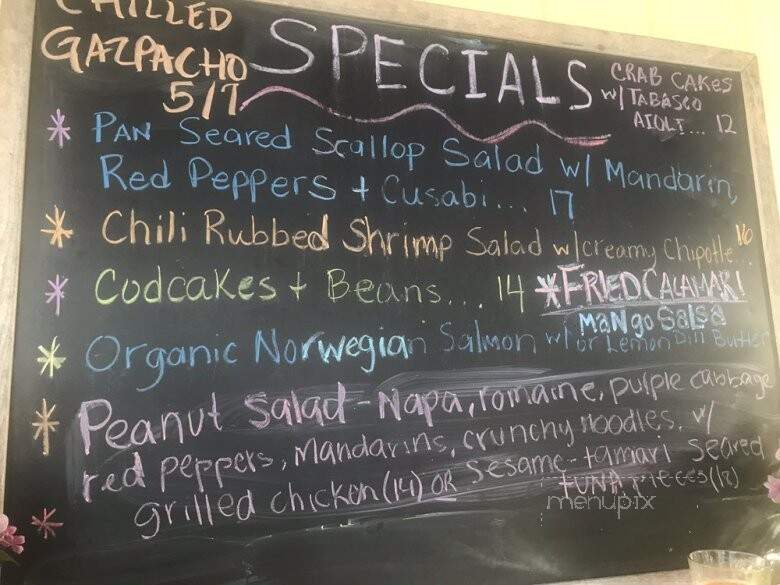 CHILLED
GAZPACHO
5/7
SPECIALS
CRAB CAKES
w/ TABASCO
AIOLI... 12
* PAN Seared Scallop Salad w/ Mandarin,
Red Peppers + Cusabi... 17
* Chili Rubbed Shrimp Salad w/ creamy Chipotle 16
* Codcakes + Beans... 14
* FRIED CALAMARI
* Organic Norwegian Salmon w/ Mango Salsa
or Lemon Dill Butter
* Peanut Salad - Napa, romaine, purple cabbage
red peppers, Mandarins, crunchy noodles, w/
grilled chicken (14) OR Sesame-tamari Seared
* TUNA Pieces (18)
menupix